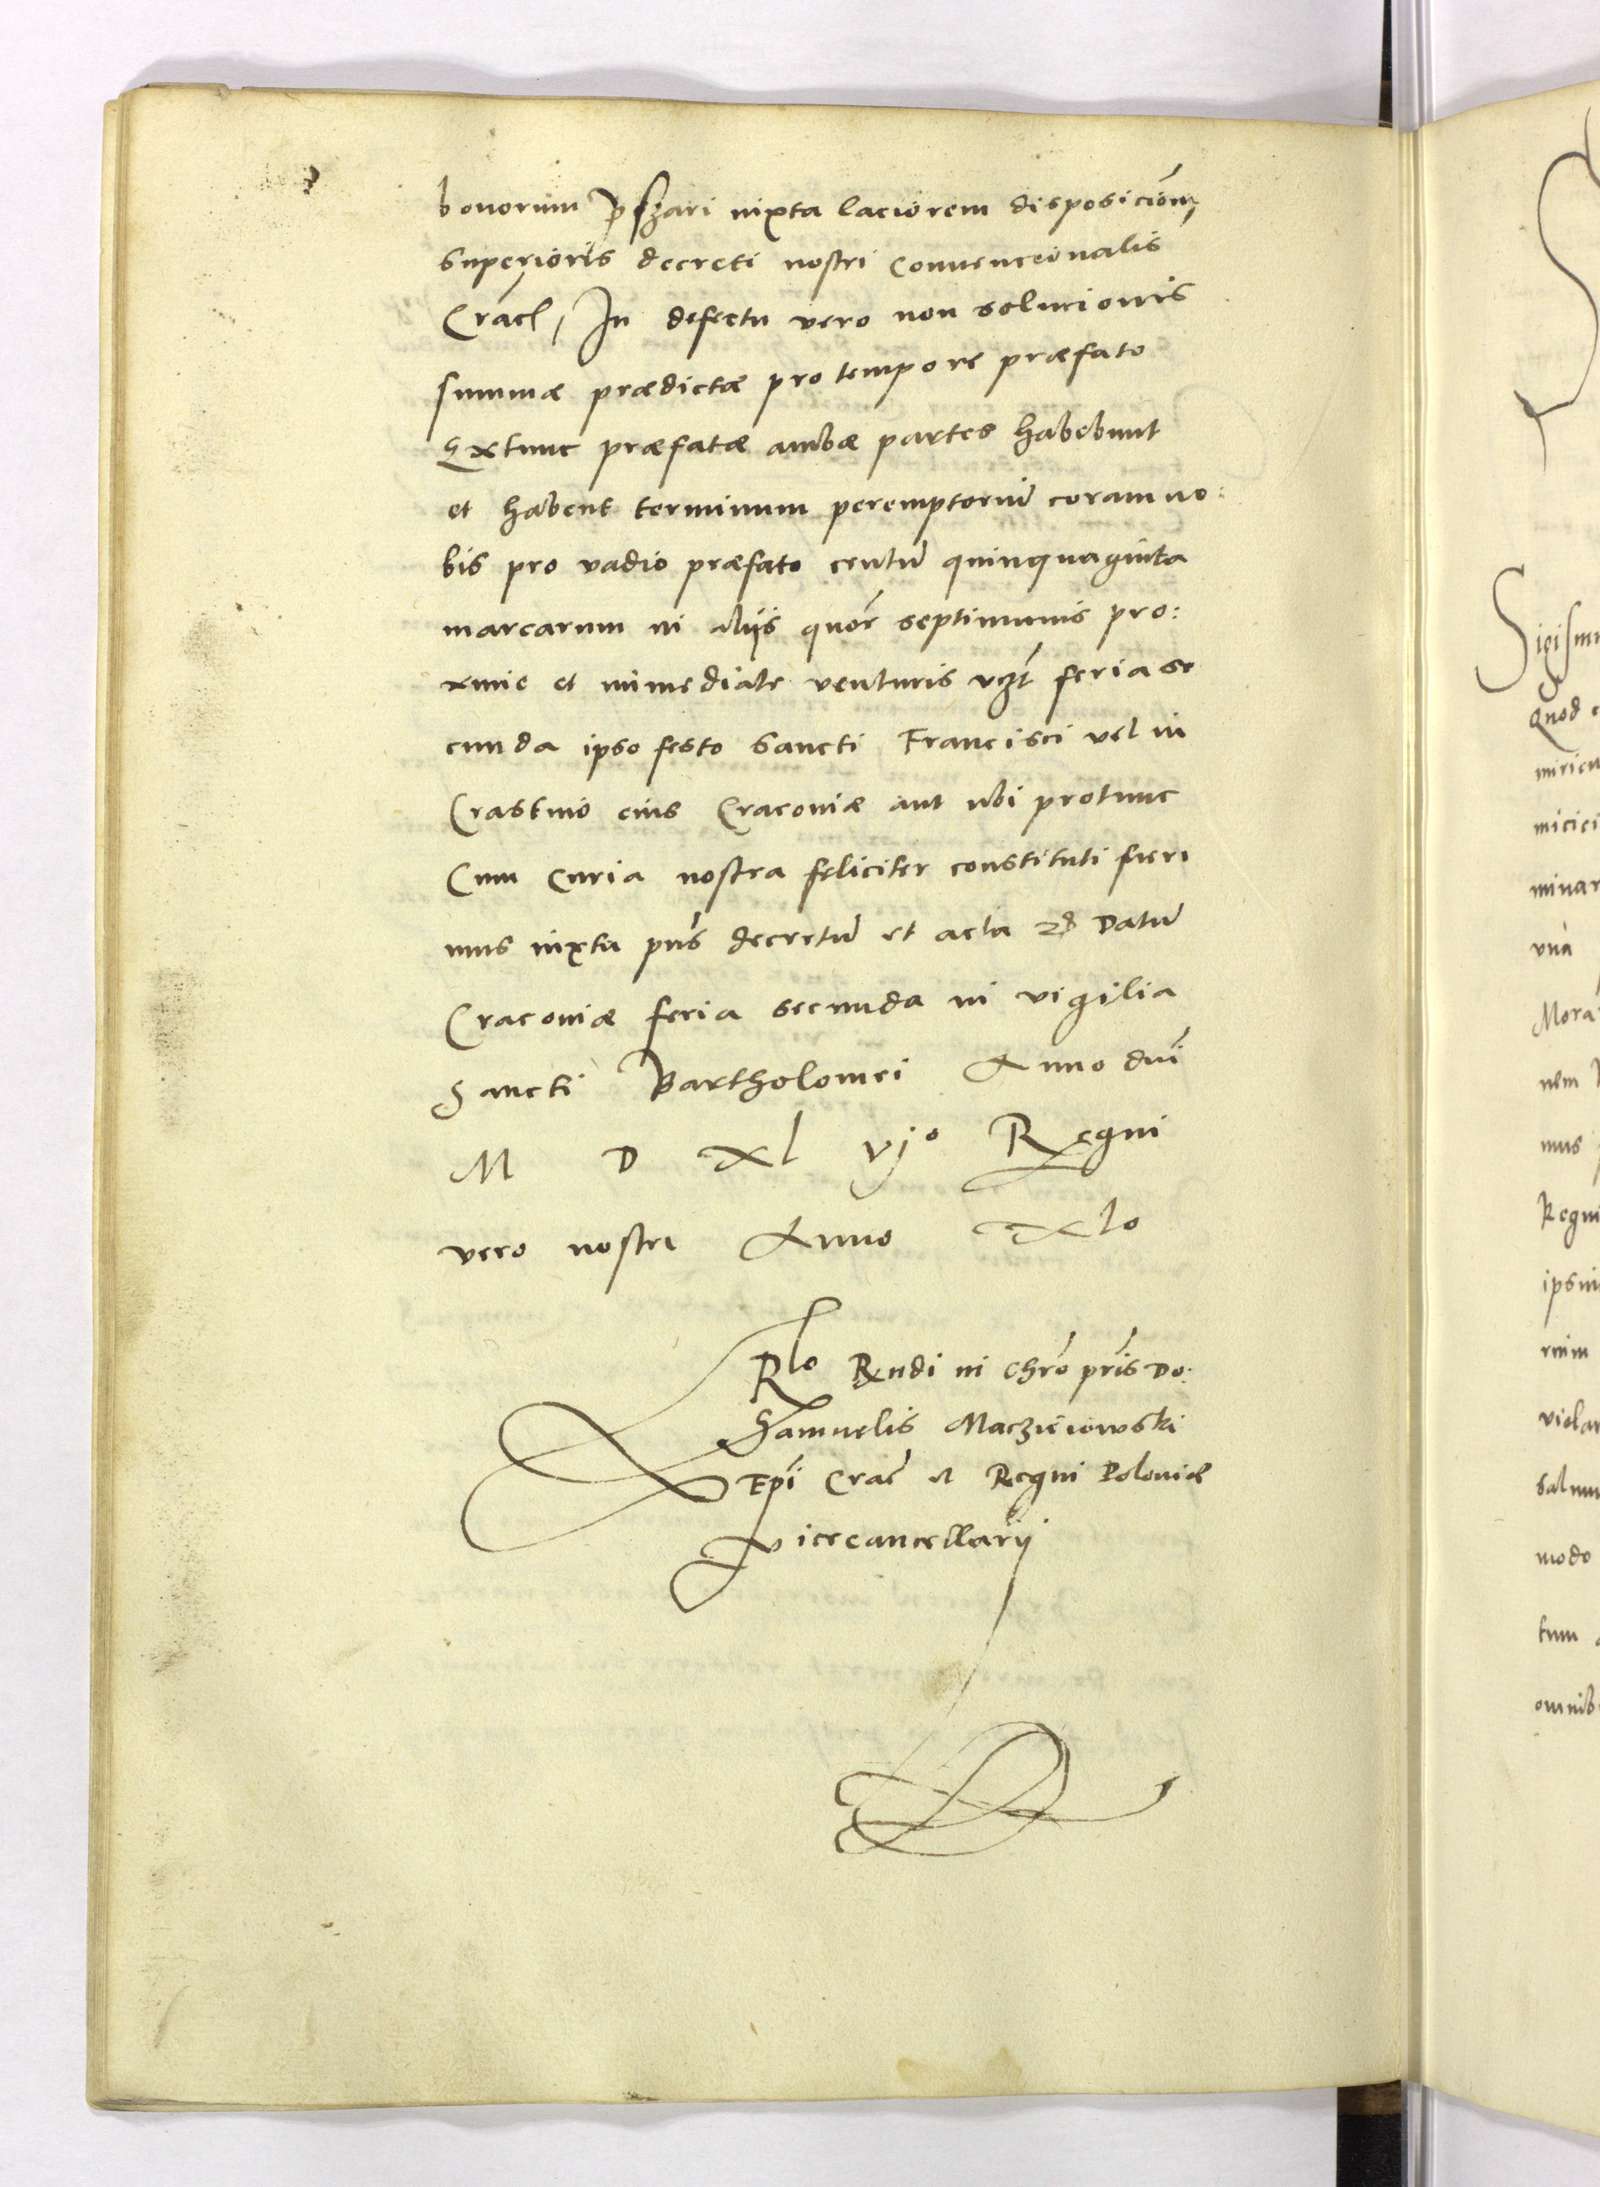 bonorum iuxta laciorem disposicioñm
superioris decreti nostri Conuencionalis
Cracˡ, In defectu vero non solucionis
summæ prædictæ pro tempore præfato
Extunc præfatæ ambæ partes habebunt
et habent terminum peremptoriũ coram no:
bis pro vadio præfato centũ quinquaginta
marcarum in aliis septimanis pro:
xime et immediate venturis vzt feria se
cunda ipso festo Sancti Francisci vel in
Crastino eius Cracoviæ aut ubi protunc
Cum Curia nostra feliciter constituti fueri
mus iuxta pñs decretũ et acta Datũ
Cracoviæ feria secunda in vigilia
Sancti Bartholomei Anno dñi
M D Xl vjº Regni
vero nostri Anno Xlo
Rlo Rndi in Chrõ prĩs Do:
Samuelis Macziеiowski
Epĩ Crac̃ et Regni Poloniæ
Vicecancellarij
Sigismu
Quod
minar
una
Mora
nem
mus
Regni
viola
modo
tum
omnib